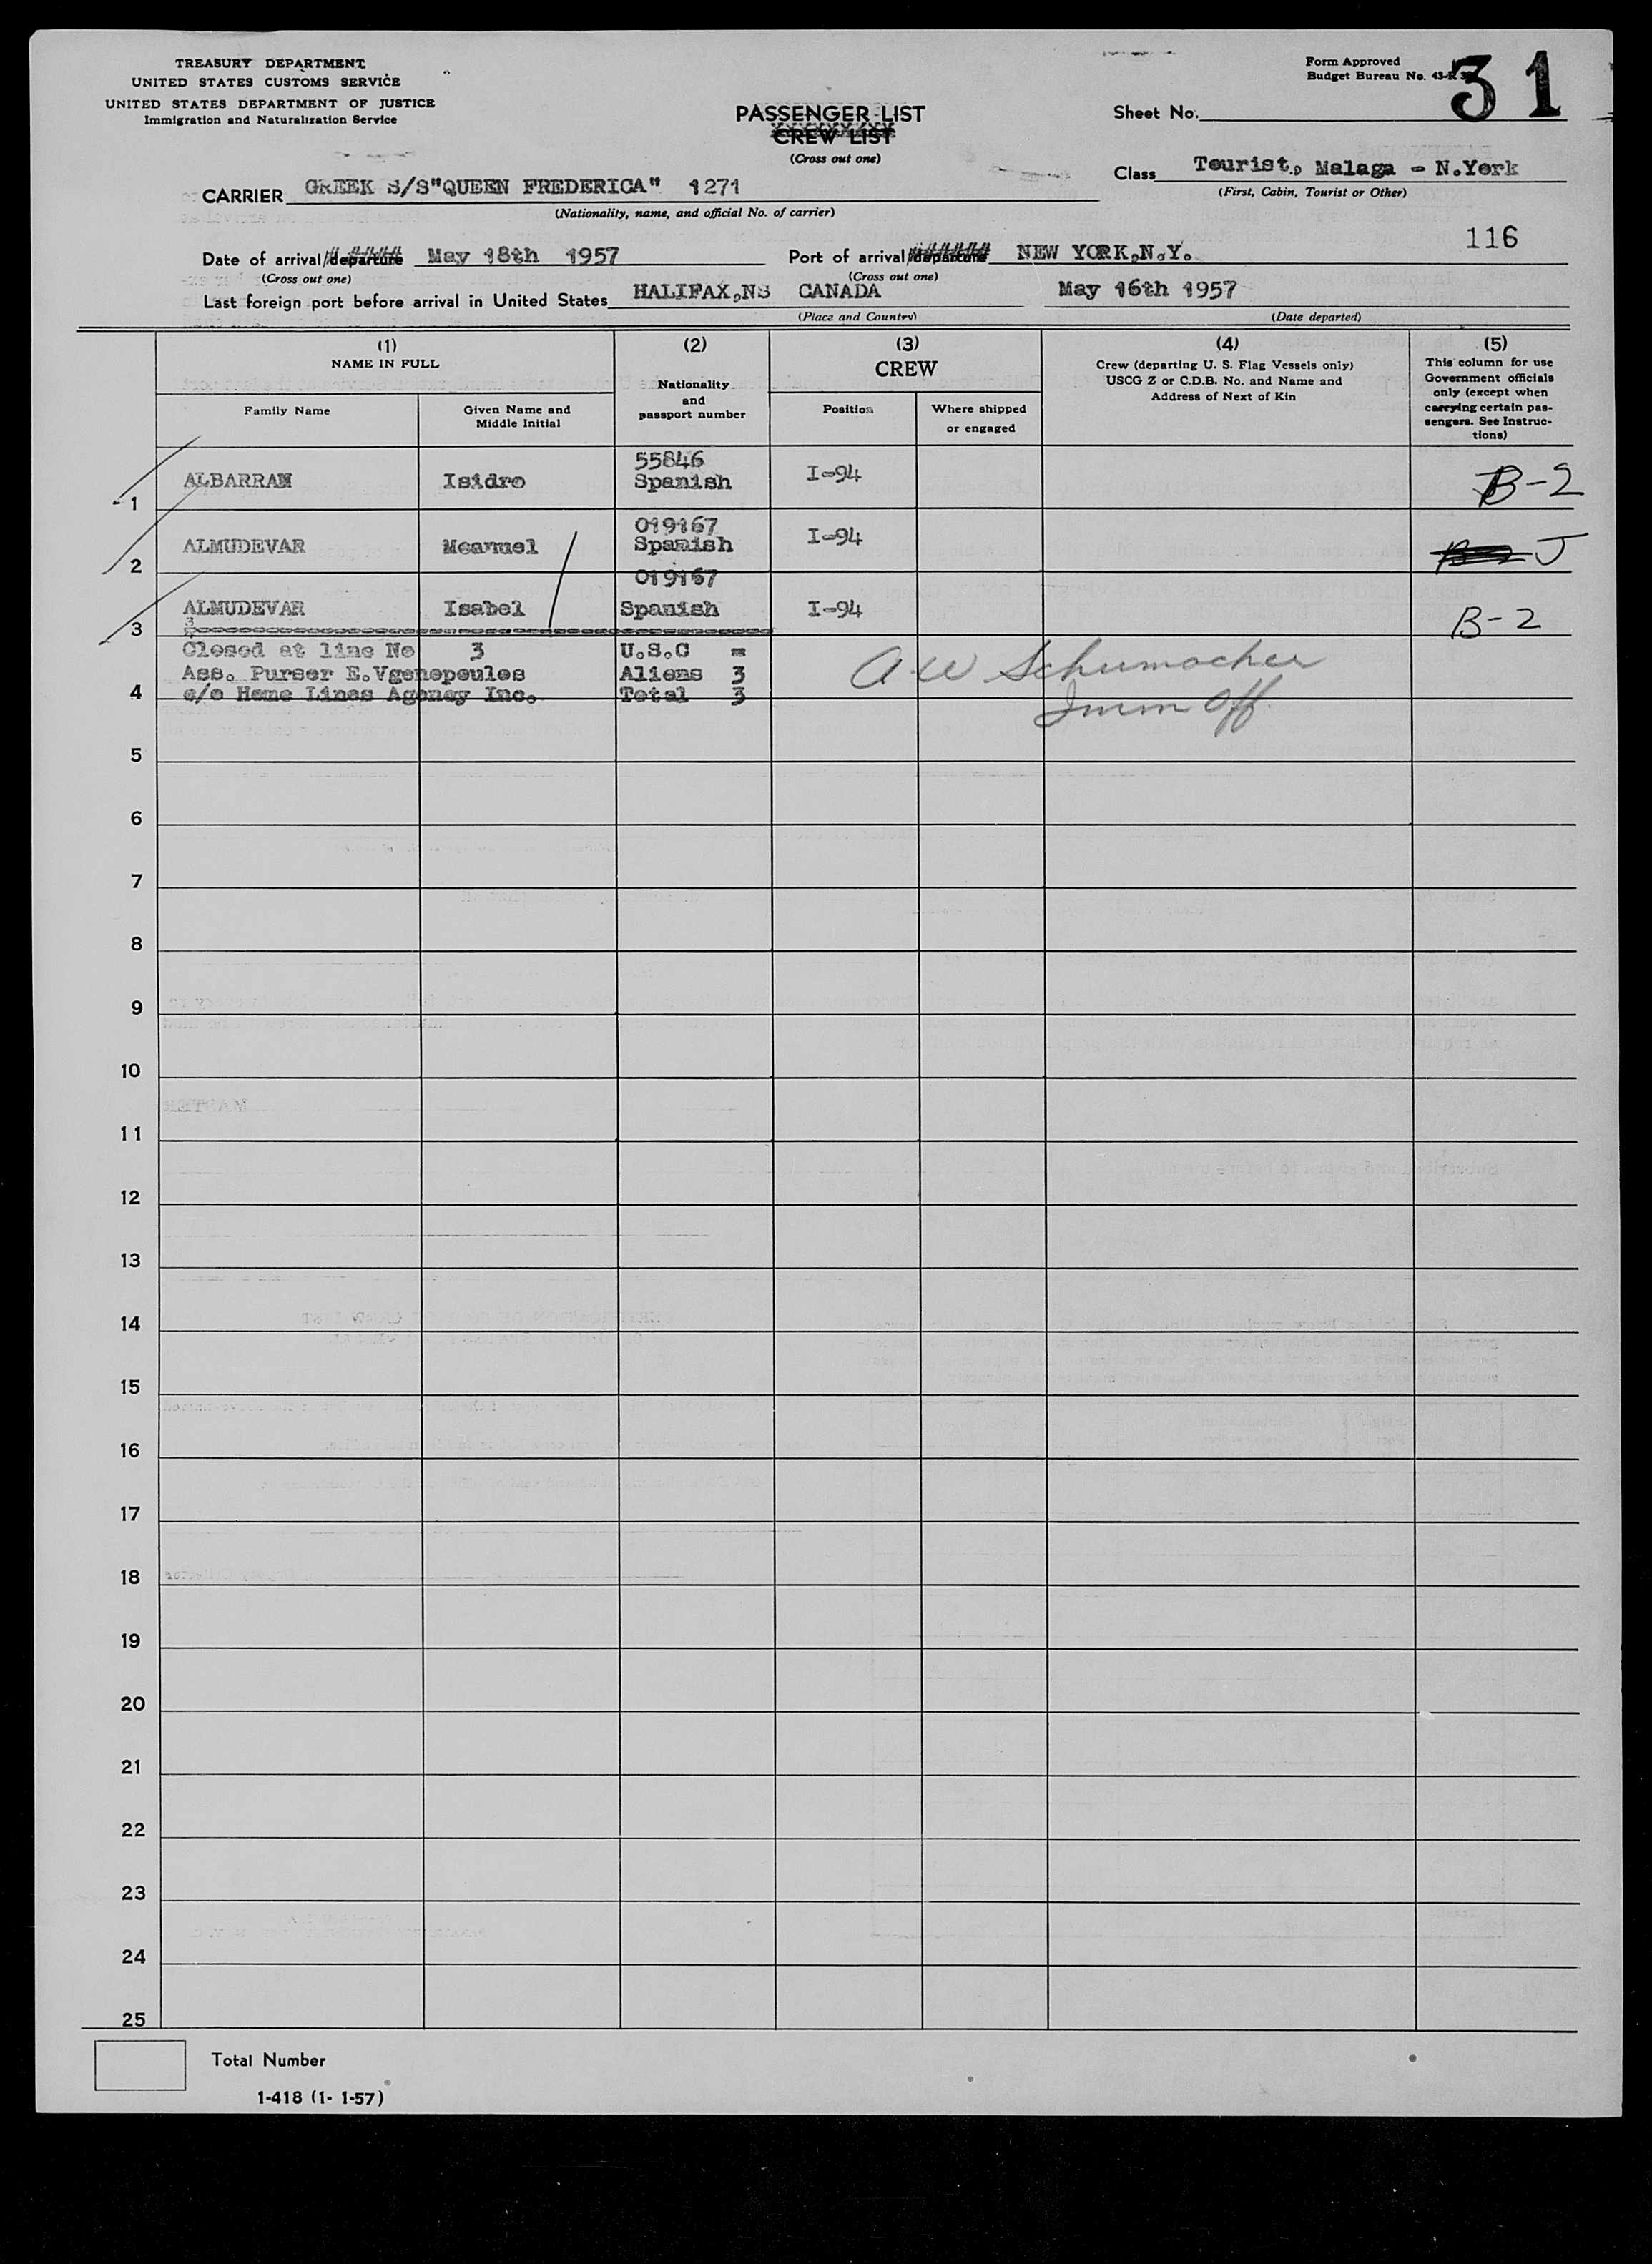 TREASURY DEPARTMENT
UNITED STATES CUSTOMS SERVICE
UNITED STATES DEPARTMENT OF JUSTICE
Immigration and Naturalization Service
Form Approved
Budget Bureau No. 43-R
31
PASSENGER LIST
CREW LIST
(Cross out one)
Sheet No.
Class Tourist., Malaga - N.York
(First, Cabin, Tourist or Other)
CARRIER GREEK S/S"QUEEN FREDERICA" 1271
(Nationality, name, and official No. of carrier)
116
Date of arrival/departure May 18th 1957 Port of arrival/departure NEW YORK,N.Y.
(Cross out one) (Cross out one)
Last foreign port before arrival in United States HALIFAX,NS CANADA May 16th 1957
(Place and Country) (Date departed)
(1) (2) (3) (4) (5)
NAME IN FULL
Family Name
Given Name and
Middle Initial
Nationality
and
passport number
CREW
Position
Where shipped
or engaged
Crew (departing U. S. Flag Vessels only)
USCG Z or C.D.B. No. and Name and
Address of Next of Kin
This column for use
Government officials
only (except when
carrying certain pas-
sengers. See Instruc-
tions)
55846
1 ALBARRAN Isidro Spanish I-94 B-2
019167
2 ALMUDEVAR Mcanuel Spanish I-94 J
019167
3 ALMUDEVAR Isabel Spanish I-94 B-2
Closed at line No 3 U.S.C =
Ass. Purser E.Vgenopoulos Aliens 3
4 c/o Home Lines Agency Inc. Total 3
A W Schumacher
Imm Off.
5
6
7
8
9
10
11
12
13
14
15
16
17
18
19
20
21
22
23
24
25
Total Number
1-418 (1- 1-57)